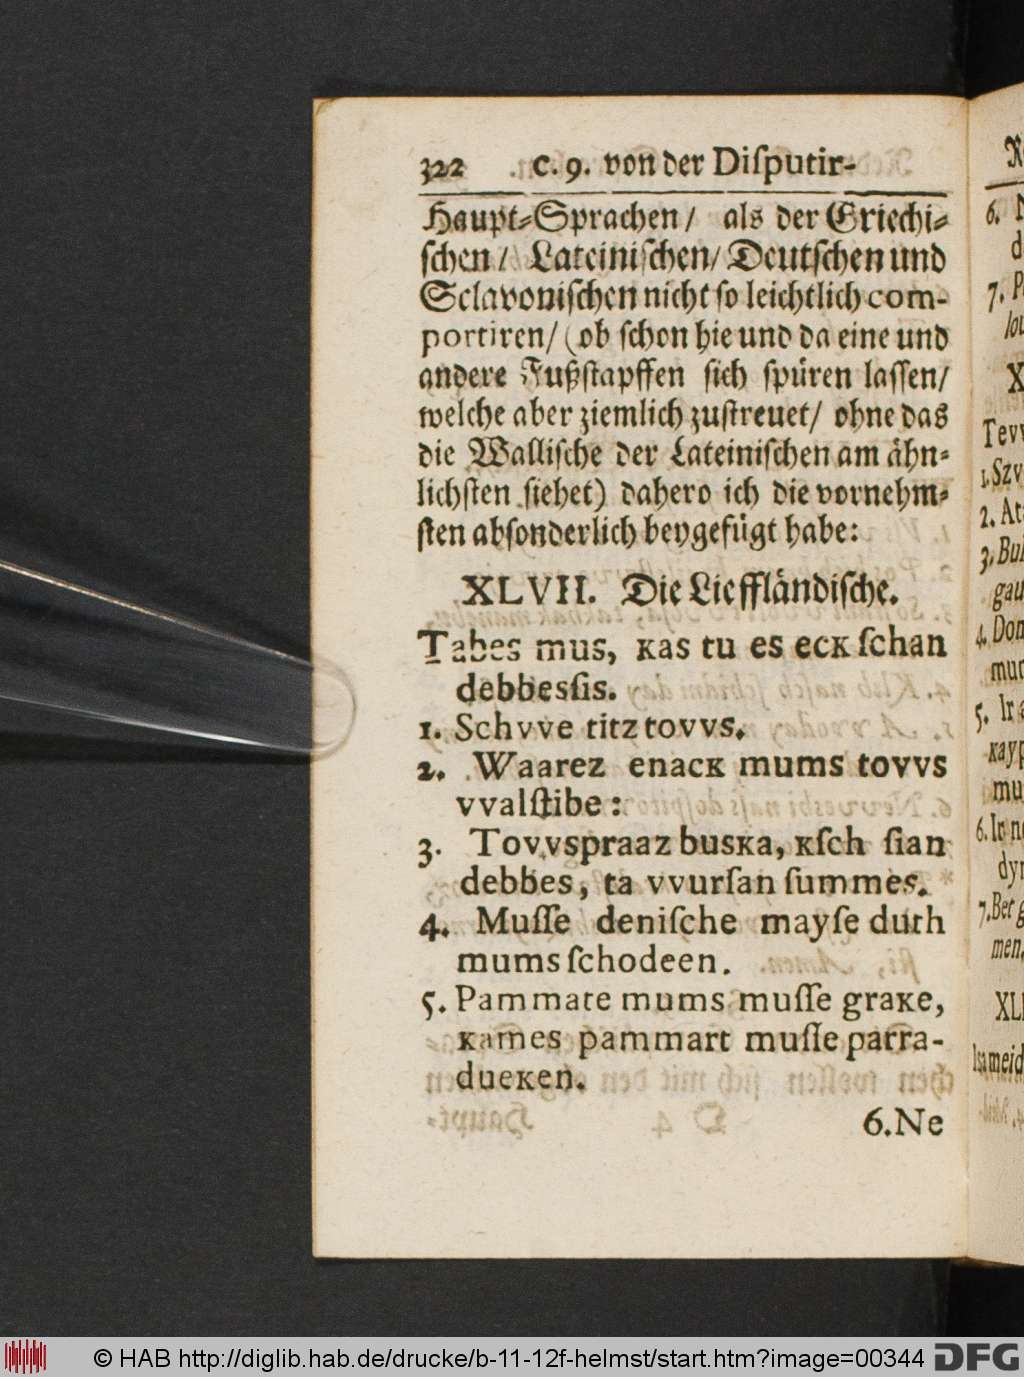 322 c. 9. von der Diſputir-
Haupt-Sprachen/ als der Griechi-
ſchen/ Lateiniſchen/ Deutſchen und
Sclavoniſchen nicht ſo leichtlich com-
portiren/ (ob ſchon hie und da eine und
andere Fußſtapffen ſich ſpüren laſſen/
welche aber ziemlich zuſtreuet/ ohne das
die Walliſche der Lateiniſchen am ähn-
lichſten ſiehet) dahero ich die vornehm-
ſten abſonderlich beygefügt habe:
XLVII. Die Lieffländiſche.
Tabes mus, ᴋas tu es ecᴋ ſchan
debbesſis.
1. Schvve titz tovvs.
2. Waarez enacᴋ mums tovvs
vvalſtibe:
3. Tovvspraaz busᴋa, ᴋſch ſian
debbes, ta vvurſan ſummes.
4. Muſſe deniſche mayſe duth
mums ſchodeen.
5. Pammate mums muſſe graᴋe,
ᴋames pammart muſſe parra-
dueᴋen.
6. Ne
© HAB http://diglib.hab.de/drucke/b-11-12f-helmst/start.htm?image=00344 DFG